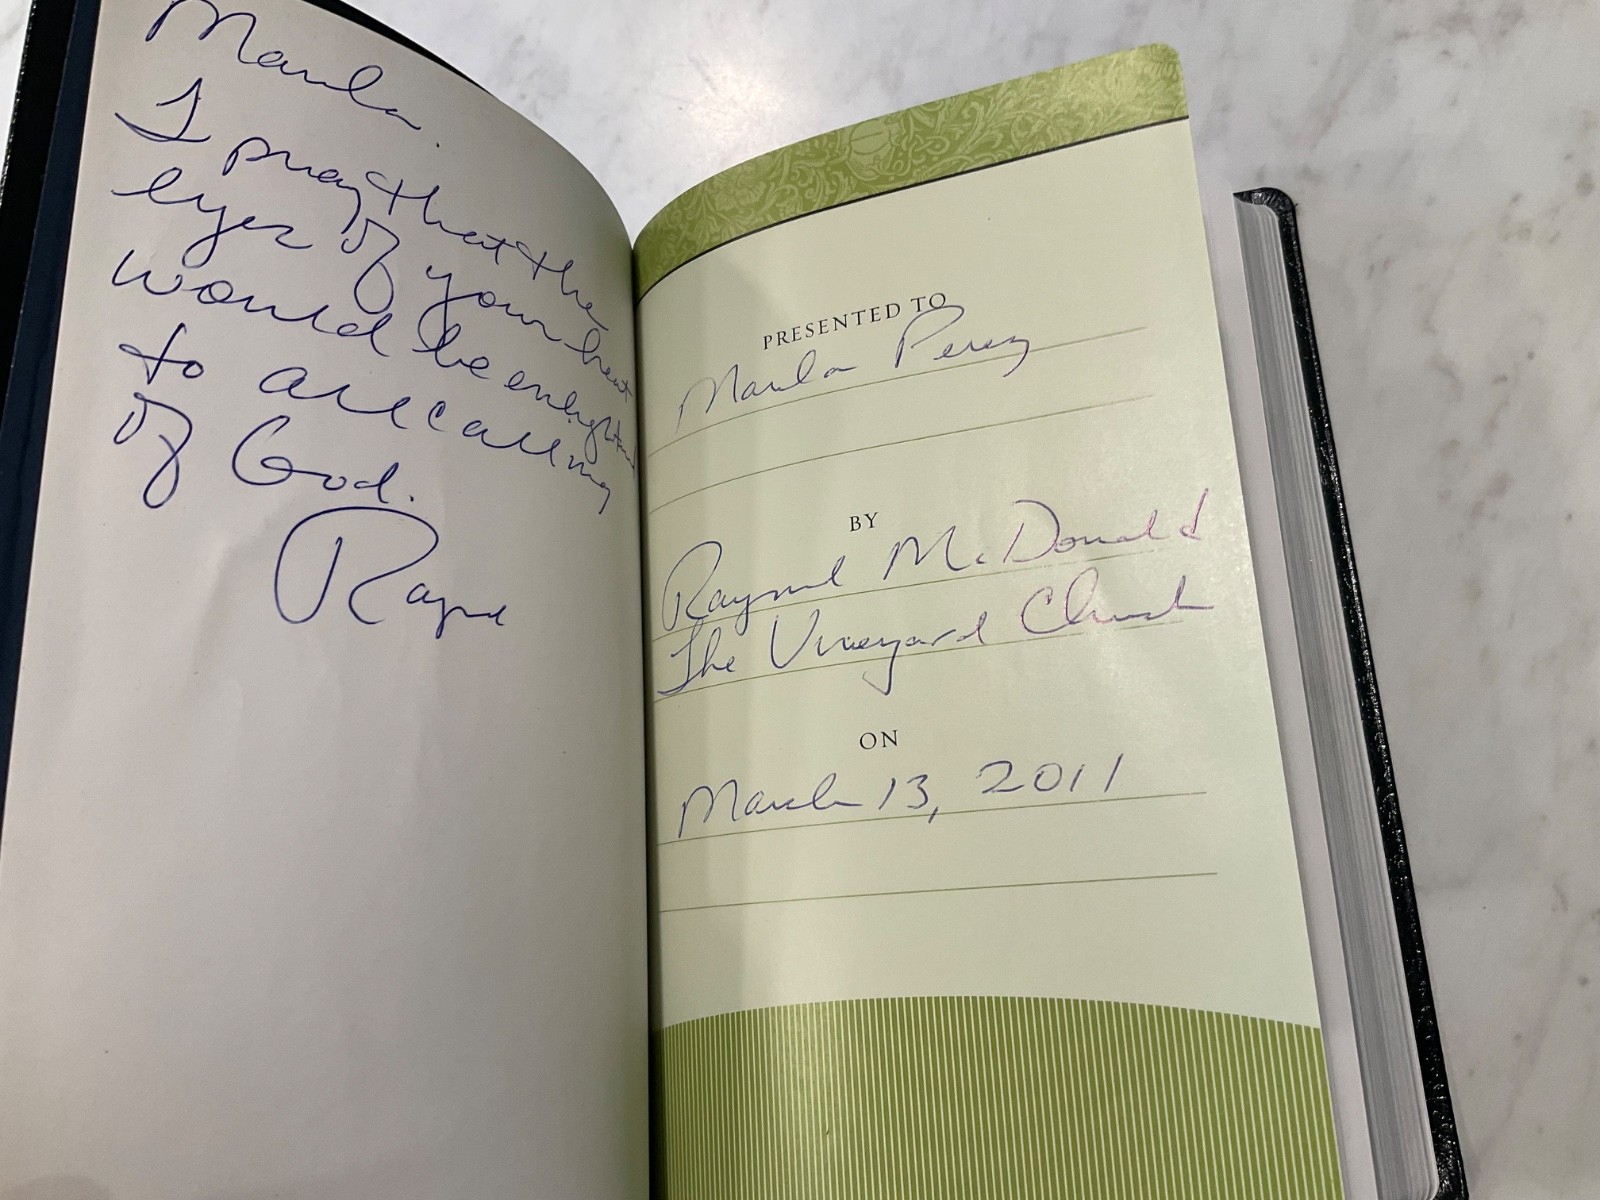 Marla.
I pray that the
eyes of your heart
would be enlightened
to all calling
of God.
Raymond
PRESENTED TO
Marla Perez
BY
Raymond McDonald
The Vineyard Church
ON
March 13, 2011